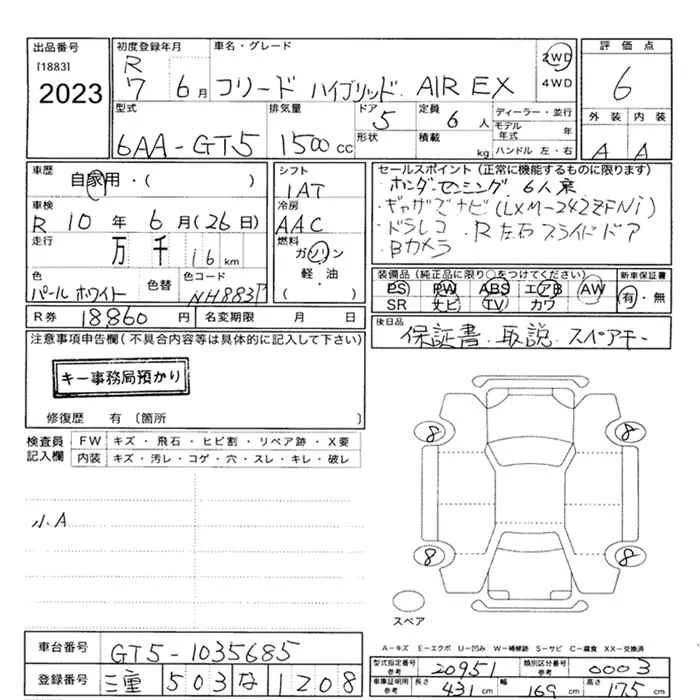 出品番号
[1883]
2023
初度登録年月
R
7 6月
車名・グレード
フリード ハイブリッド AIR EX
2WD
4WD
評価点
6
外装 内装
A A
型式
6AA-GT5
排気量
1500 CC
ドア
5
形状
定員
6 人
積載
kg
ディーラー・並行
モデル年式 年
ハンドル 左・右
車歴
自家用・( )
車検
R 10 年 6 月(26 日)
走行
万 千 16 km
色
パールホワイト
色替
色コード
NH883P
シフト
IAT
冷房
AAC
燃料
ガソリン
軽・油
( )
セールスポイント(正常に機能するものに限ります)
・ホンダセンシング 6人乗
・ギャザズナビ(LXM-242ZFNi)
・ドラレコ ・R左右スライドドア
・Bカメラ
装備品(純正品に限り○をつけてください)
PS PW ABS エアB AW
SR ナビ TV カワ
新車保証書
有・無
R券 18860 円
名変期限 月 日
後日品
保証書・取説・スペアキー
注意事項申告欄(不具合内容等は具体的に記入して下さい)
キー事務局預かり
修復歴 有 〔箇所 〕
検査員
記入欄
FW キズ・飛石・ヒビ割・リペア跡・X要
内装 キズ・汚レ・コゲ・穴・スレ・キレ・破レ
小A
8 8
8 8
スペア
A-キズ E-エクボ U-凹み W-補修跡 S-サビ C-腐食 XX-交換済
車台番号
GT5-1035685
登録番号
三重 503 な 1208
型式指定番号
参考
20951
類別区分番号
参考
0003
車庫証明用
参考
長さ 431 cm 幅 169 cm 高さ 175 cm